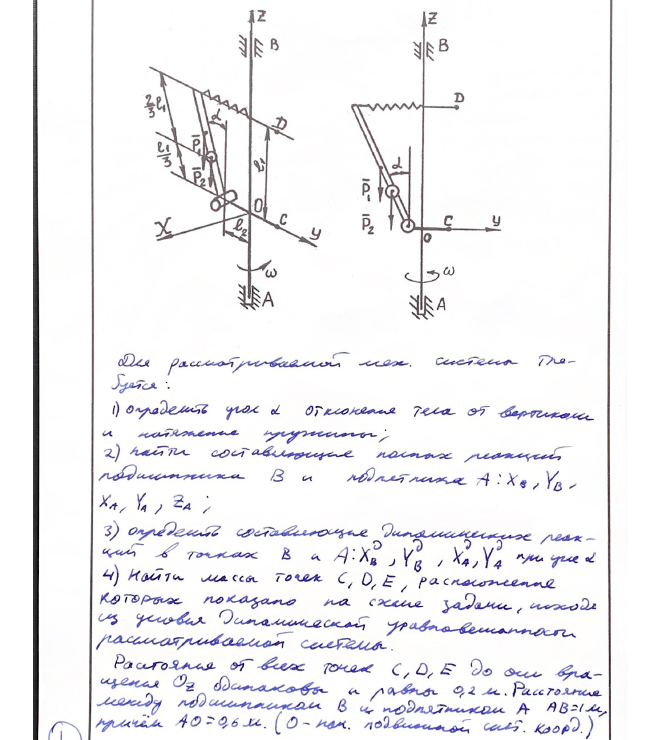 Z
B
Z
B
2/3 l₁
α
D
D
P̄₁
l₁/3
l₁
P̄₂
α
P̄₁
P̄₂
O
C
C
X
l₂
У
O
У
ω
ω
A
A
Для рассматриваемой мех. системы тре-
буется:
1) определить угол α отклонения тела от вертикали
и натяжение пружины;
2) найти составляющие полных реакций
подшипника B и подпятника A: X_B, Y_B,
X_A, Y_A, Z_A;
3) определить составляющие динамических реак-
ций в точках B и A: X_B^д, Y_B^д, X_A^д, Y_A^д при угле α
4) Найти массы точек C, D, E, расположение
которых показано на схеме задачи, исходя
из условия динамической уравновешенности
рассматриваемой системы.
Расстояние от всех точек C, D, E до оси вра-
щения Oz одинаковы и равны 0,2 м. Расстояние
между подшипником B и подпятником A AB=1м,
причём AO=0,6м. (O- нач. подвижной сист. коорд.)